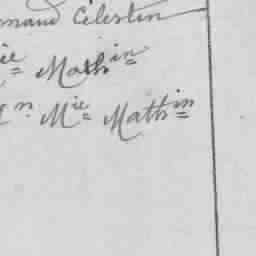 mand Célestin
ie Mathin
n. Mie Mathin